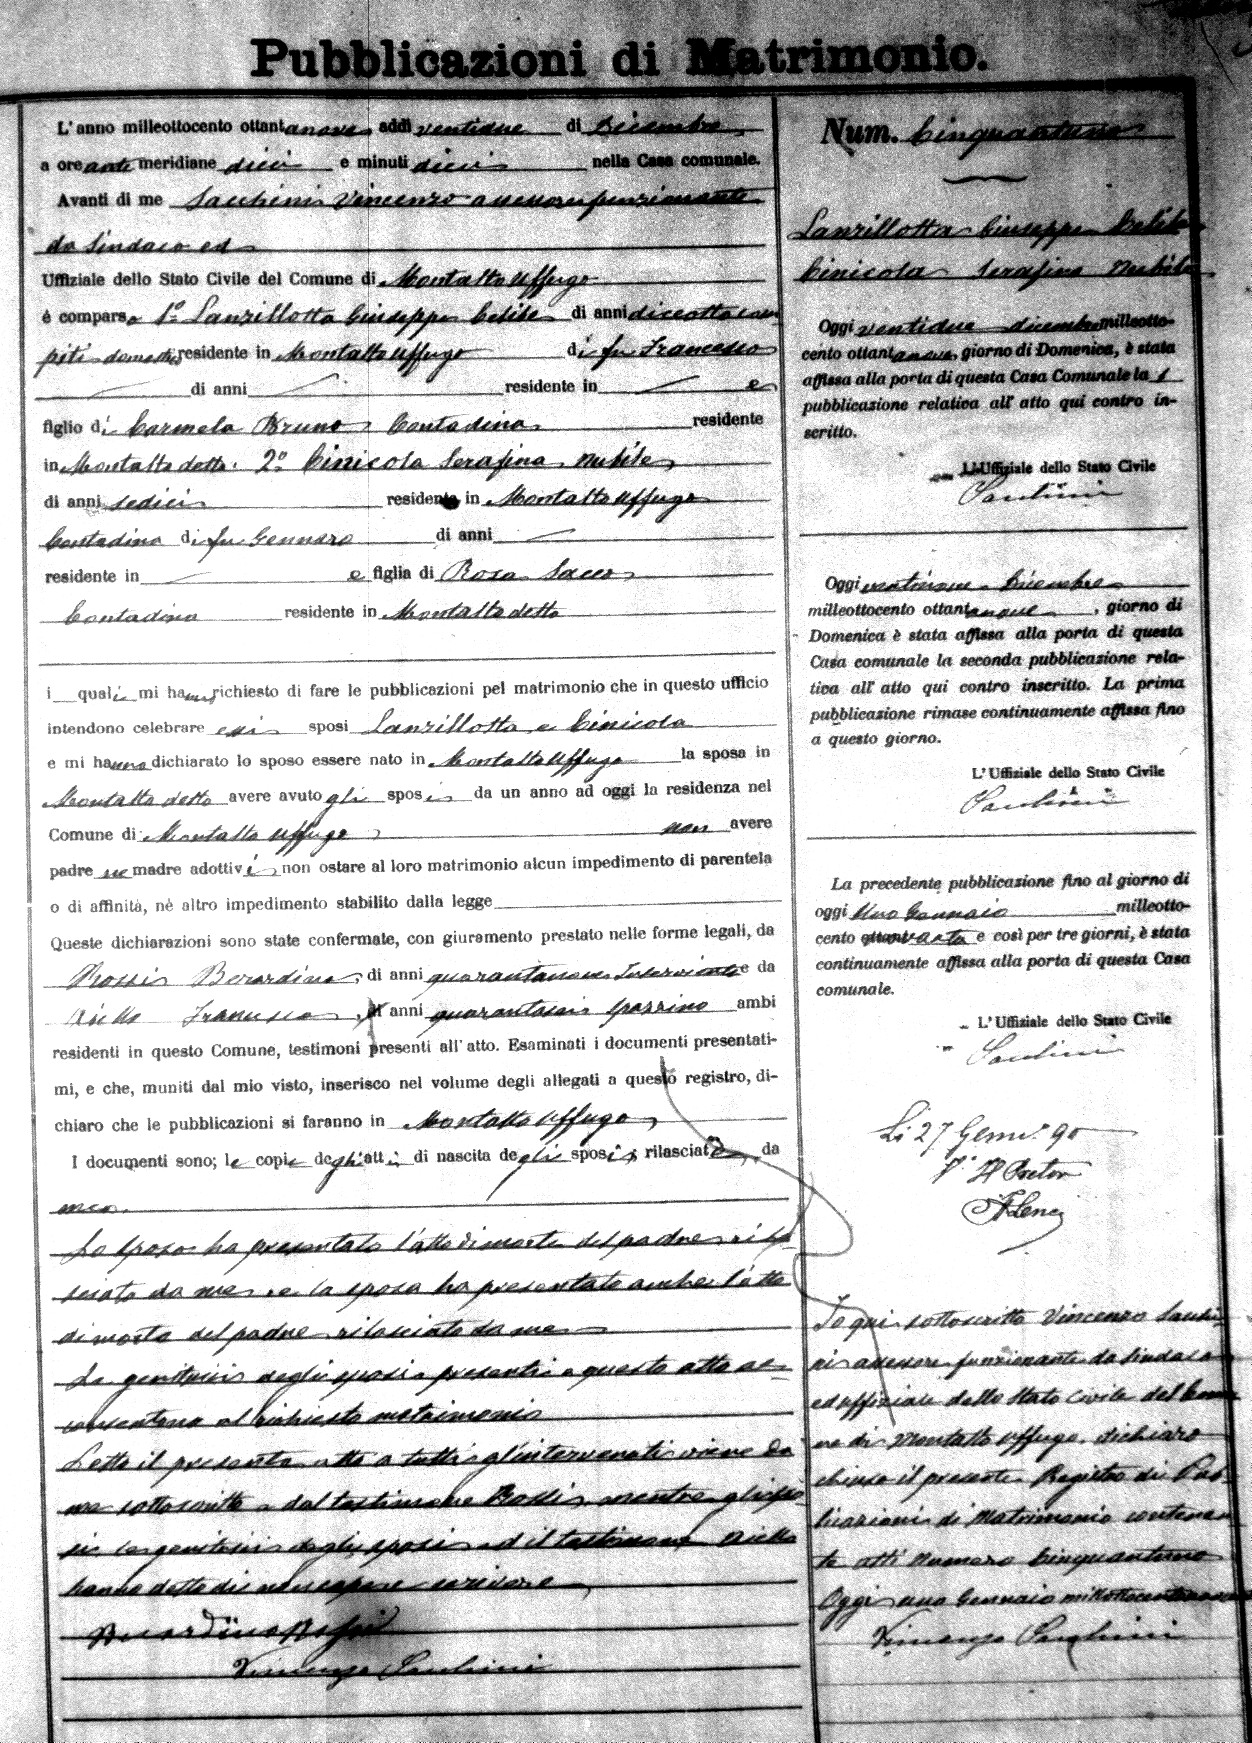 Pubblicazioni di Matrimonio.
L'anno milleottocento ottantanove addì ventidue di Dicembre
a ore ante meridiane dieci e minuti dieci nella Casa comunale.
Avanti di me Sacchini Vincenzo assessore funzionante
da Sindaco ed
Uffiziale dello Stato Civile del Comune di Montalto Uffugo
è comparso 1º Lanzillotta Giuseppe Celibe di anni diciotto com
piti residente in Montalto Uffugo di fu Francesco
di anni residente in e
figlio di Carmela Bruno Contadina residente
in Montalto detto. 2º Cinicola Serafina nubile
di anni sedici residente in Montalto Uffugo
Contadina di fu Gennaro di anni
residente in e figlia di Rosa Sacco
Contadina residente in Montalto detto
i quali mi hanno richiesto di fare le pubblicazioni pel matrimonio che in questo ufficio
intendono celebrare essi sposi Lanzillotta e Cinicola
e mi hanno dichiarato lo sposo essere nato in Montalto Uffugo la sposa in
Montalto detto avere avuto gli sposi da un anno ad oggi la residenza nel
Comune di Montalto Uffugo non avere
padre ne madre adottivi non ostare al loro matrimonio alcun impedimento di parentela
o di affinità, nè altro impedimento stabilito dalla legge
Queste dichiarazioni sono state confermate, con giuramento prestato nelle forme legali, da
Rossi Berardino, di anni quarantanove Inserviente e da
Aiello Francesco, di anni quarantasei spazzino ambi
residenti in questo Comune, testimoni presenti all'atto. Esaminati i documenti presentati-
mi, e che, muniti dal mio visto, inserisco nel volume degli allegati a questo registro, di-
chiaro che le pubblicazioni si faranno in Montalto Uffugo
I documenti sono; le copie degli atti di nascita degli sposi, rilasciate da
me.
Lo sposo ha presentato l'atto di morte del padre rila
sciato da me, e la sposa ha presentato anche l'atto
di morte del padre rilasciato da me
Le genitrici degli sposi presenti a questo atto ac
consentono al richiesto matrimonio
Letto il presente atto a tutti gl'intervenuti viene da
me sottoscritto e dal testimone Rossi, mentre gli spo
si le genitrici degli sposi ed il testimone Aiello
hanno detto di non sapere scrivere
Berardino Rossi
Vincenzo Sacchini
Num. Cinquantuno
Lanzillotta Giuseppe Celibe
Cinicola Serafina Nubile
Oggi ventidue dicembre milleotto-
cento ottantanove, giorno di Domenica, è stata
affissa alla porta di questa Casa Comunale la 1
pubblicazione relativa all'atto qui contro in-
scritto.
L'Uffiziale dello Stato Civile
Sacchini
Oggi ventinove Dicembre
milleottocento ottantanove, giorno di
Domenica è stata affissa alla porta di questa
Casa comunale la seconda pubblicazione rela-
tiva all'atto qui contro inscritto. La prima
pubblicazione rimase continuamente affissa fino
a questo giorno.
L'Uffiziale dello Stato Civile
Sacchini
La precedente pubblicazione fino al giorno di
oggi Uno Gennaio milleotto-
cento novanta e così per tre giorni, è stata
continuamente affissa alla porta di questa Casa
comunale.
L'Uffiziale dello Stato Civile
Sacchini
Li 27 Genn. 90
Il Pretor
Io qui sottoscritto Vincenzo Sacchi
ni assessore funzionante da Sindaco
ed uffiziale dello Stato Civile del Comu
ne di Montalto Uffugo, dichiaro
chiuso il presente Registro di Pub
blicazioni di Matrimonio contenen
te atti numero Cinquantuno
Oggi uno Gennaio millottocentonovanta
Vincenzo Sacchini